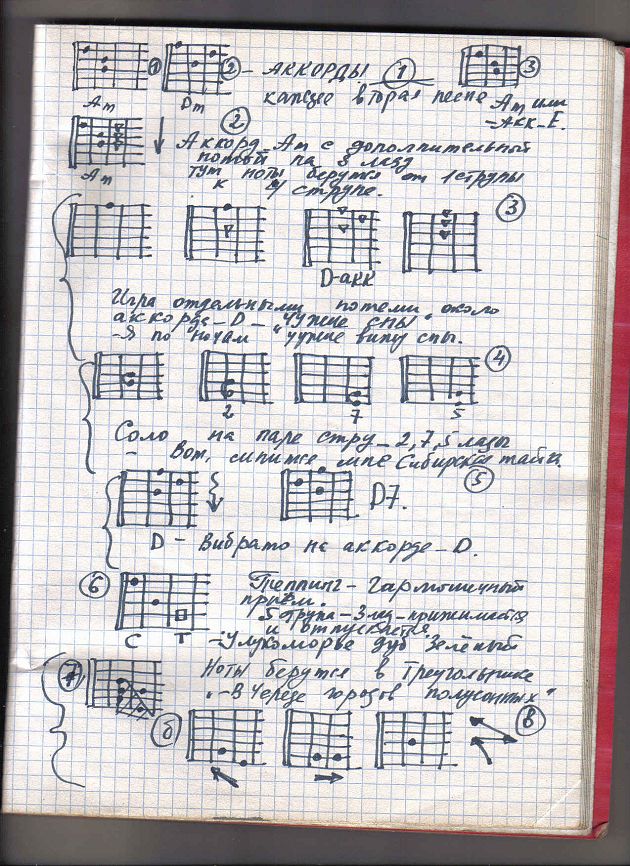 ① ② - АККОРДЫ ① ③
Am Dm каждые вторая песне Am или
-Акк-E.
②
Аккорд-Am с дополнительный
нотой на 3 ладу
Am тут ноты берутся от 1 струны
к 4 струне.
③
D-акк
Игра отдельными нотами около
аккорда-D-"Чужие сны"
-Я по ночам "чужие вижу сны.
④
2 7 5
Соло на паре стру_2,7,5 лады
- Вот, снится мне Сибирская тайга.
⑤
D7.
D - Вибрато на аккорде-D.
⑥ Теппинг - Гармоничный
приём.
5 струна-3 лад-прижимается
и отпускается
C T -Улукоморье дуб Зелёный
⑦ Ноты берутся в Треугольнике
"-В Череде городов полусонных"
б В